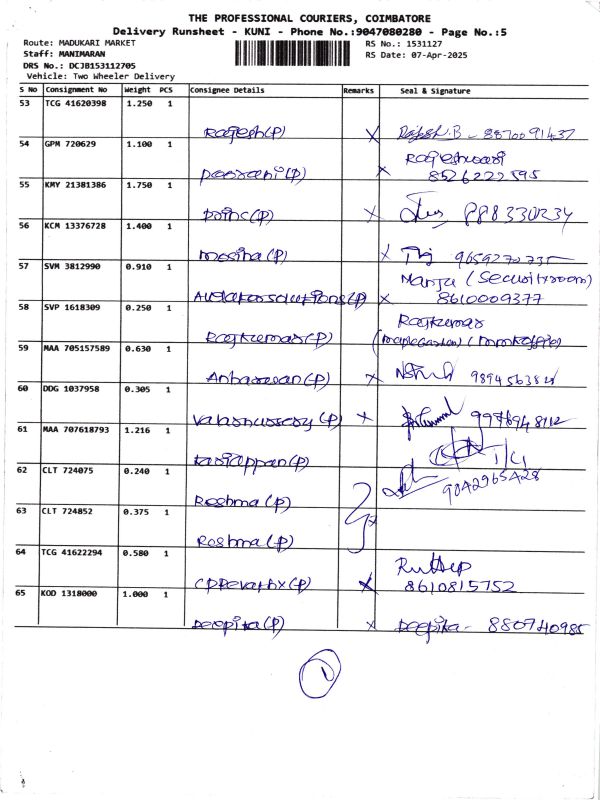 THE PROFESSIONAL COURIERS, COIMBATORE
Delivery Runsheet - KUNI - Phone No.:9047080280 - Page No.:5
Route: MADUKARI MARKET
RS No.: 1531127
Staff: MANIMARAN
RS Date: 07-Apr-2025
DRS No.: DCJB153112705
Vehicle: Two Wheeler Delivery
S No Consignment No Weight PCS Consignee Details Remarks Seal & Signature
53 TCG 41620398 1.250 1
Rajesh(P) x Rajesh.B - 8870091437
54 GPM 720629 1.100 1
Rajeshwari
(P) x 8526222595
55 KMY 21381386 1.750 1
(P) x 888330234
56 KCM 13376728 1.400 1
(P) x 9659270735
57 SVM 3812990 0.910 1
Manju (Security room)
(P) x 8610009377
58 SVP 1618309 0.250 1
Rajkumar
Rajkumar(P)
59 MAA 705157589 0.630 1
Anbarasan(P) x
60 DDG 1037958 0.305 1
(P) x
61 MAA 707618793 1.216 1
Kariappan(P)
62 CLT 724075 0.240 1
9042965428
Reshma(P)
63 CLT 724852 0.375 1
Reshma(P) x
64 TCG 41622294 0.580 1
(P) x 8610815752
65 KOD 1318000 1.000 1
Deepika(P) x Deepika - 8807740985
1